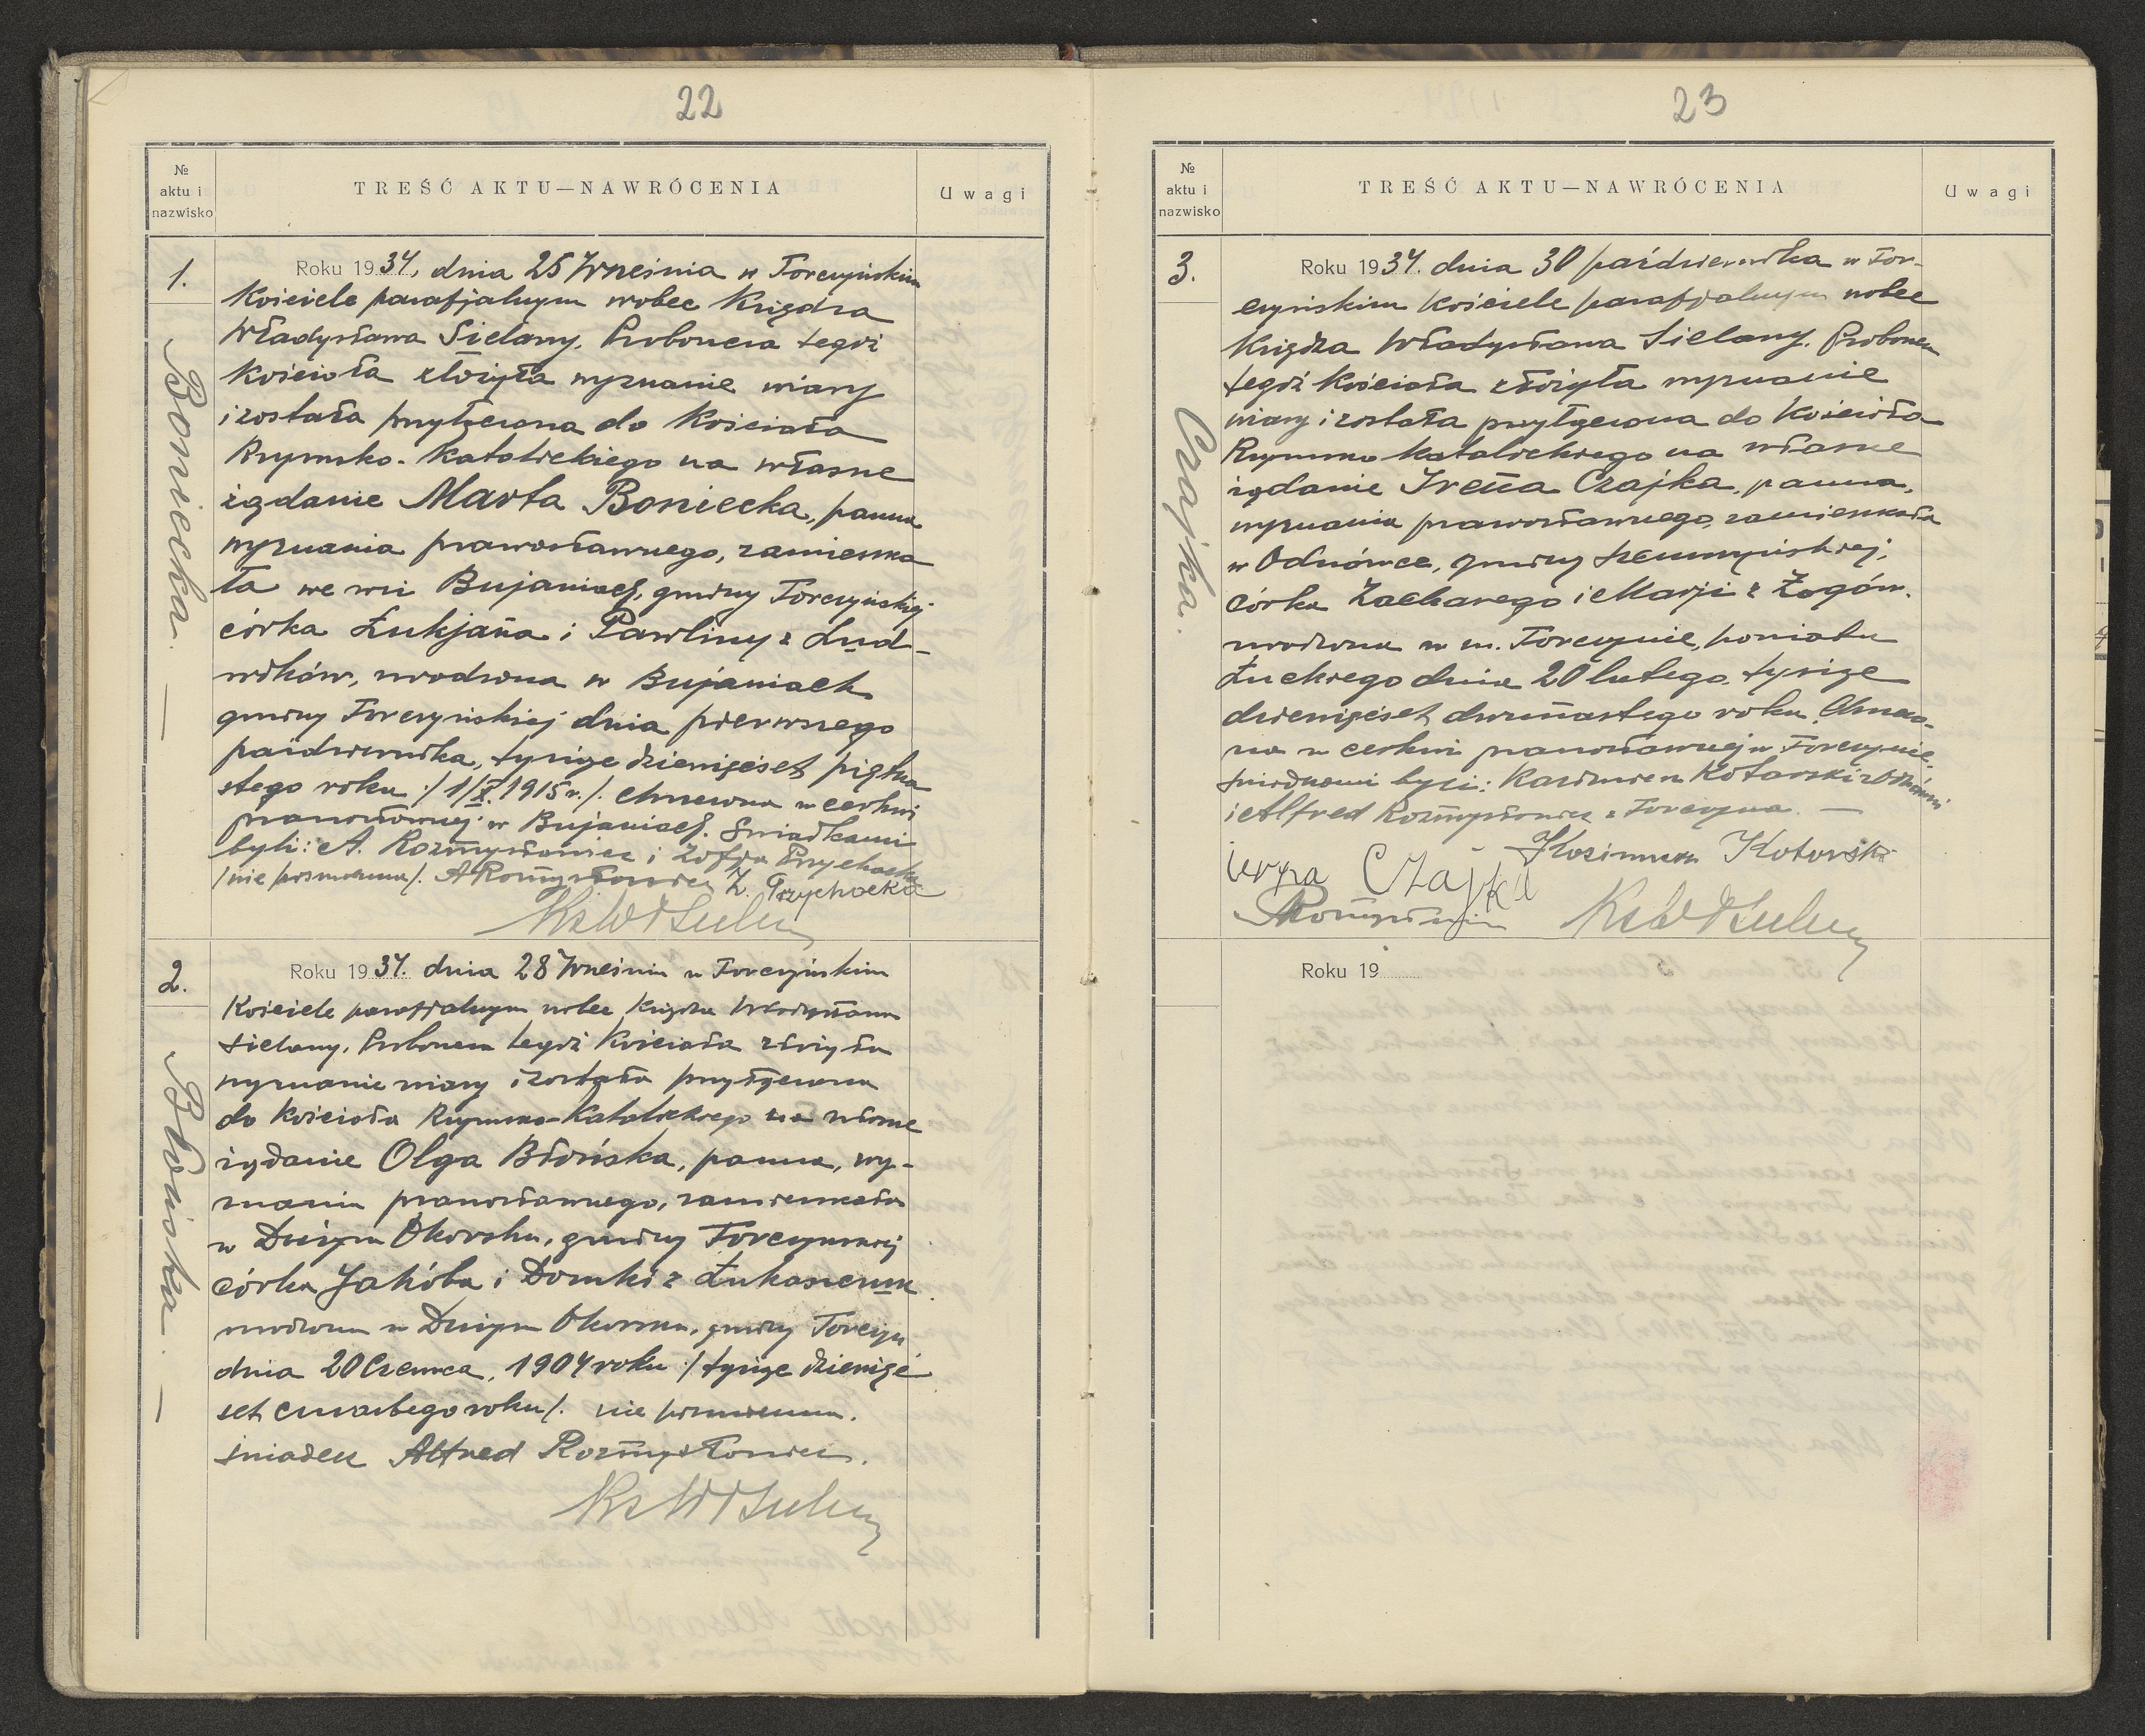 22
№ aktu i nazwisko
TREŚĆ AKTU—NAWRÓCENIA
Uwagi
1.
Boniecka. —
Roku 1934, dnia 25 Września w Torczyńskim
Kościele parafjalnym wobec Księdza
Władysława Sielawy, Proboszcza tegoż
Kościoła złożyła wyznanie wiary
i została przyłączona do Kościoła
Rzymsko-Katolickiego na własne
żądanie Marta Boniecka, panna
wyznania prawosławnego, zamieszka
ła we wsi Bujaniach, gminy Torczyńskiej
córka Łukjana i Pawliny z Lud-
wików, urodzona w Bujaniach
gminy Torczyńskiej dnia pierwszego
października, tysiąc dziewięćset piętna
stego roku /1/X.1915 r./. Chrzczona w cerkwi
prawosławnej w Bujaniach. Świadkami
byli: A. Rozmysłowicz i Zofja Przychocka
/nie piśmienna/. A Rozmysłowicz Z. Przychocka
Ks W
2.
Błońska. —
Roku 1934. dnia 28 Września w Torczyńskim
Kościele parafjalnym wobec Księdza Władysława
Sielawy, Proboszcza tegoż Kościoła złożyła
wyznanie wiary i została przyłączona
do Kościoła Rzymsko-Katolickiego na własne
żądanie Olga Błońska, panna, wy-
znania prawosławnego, zamieszkała
w Dużym Okorsku, gminy Torczyńskiej
córka Jakóba i Domki z Łukaszczuk
urodzona w Dużym Okorsku, gminy Torczyn
dnia 20 Czerwca, 1904 roku /tysiąc dziewięć
set czwartego roku/. nie piśmienna.
świadek Alfred Rozmysłowicz.
Ks W
23
№ aktu i nazwisko
TREŚĆ AKTU—NAWRÓCENIA
Uwagi
3.
Czajka.
Roku 1934. dnia 30 października w Tor-
czyńskim Kościele parafjalnym wobec
Księdza Władysława Sielawy, Proboszcza
tegoż Kościoła złożyła wyznanie
wiary i została przyłączona do Kościoła
Rzymsko Katolickiego na własne
żądanie Irena Czajka, panna,
wyznania prawosławnego, zamieszkała
w Odnówce, gminy
córka Zacharego i Marji z Żogów.
urodzona w m. Torczynie, powiatu
Łuckiego dnia 20 lutego, tysiąc
dziewięćset dwunastego roku. Chrzczo-
na w cerkwi prawosławnej w Torczynie.
Świadkami byli: Kazimierz Kotarski z
i Alfred Rozmysłowicz z Torczyna. —
Kazimierz Kotarski
Czajka
ARozmysłowicz
Ks W
Roku 19